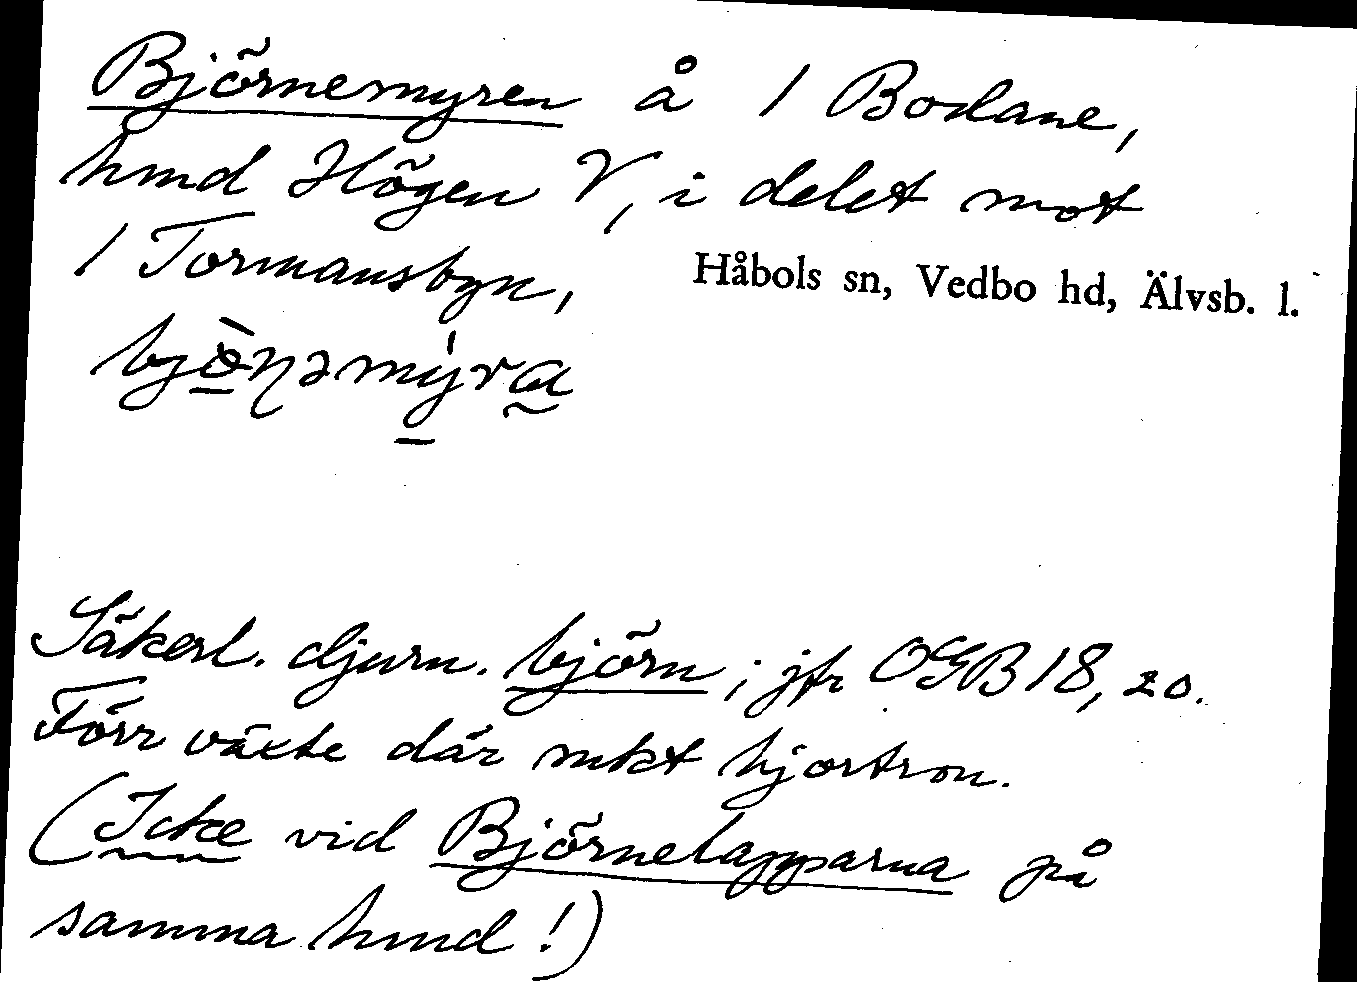 Björnemyren å 1 Bodane,
hmd Högen V, i delet mot
1 Tormansbyn,
Håbols sn, Vedbo hd, Älvsb. l.
bjö̀ṇəmýra
Säkerl. djurn. björn; jfr OGB 18, 20.
Förr växte där mkt hjortron.
(Icke vid Björnelapparna på
samma hmd!)